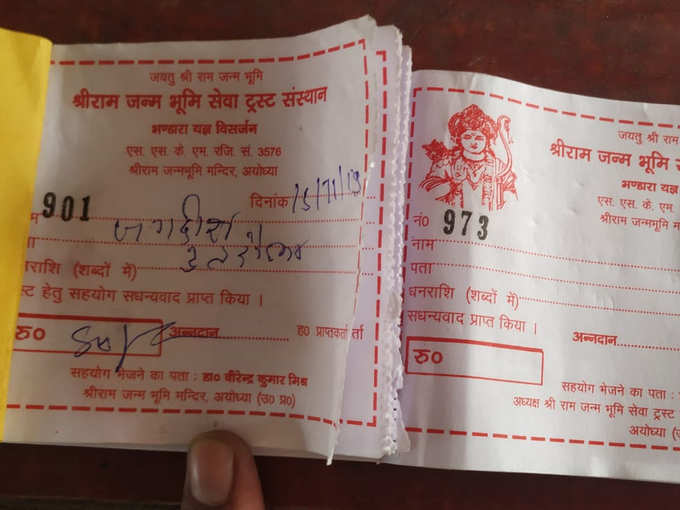 जयतु श्री राम जन्म भूमि
श्रीराम जन्म भूमि सेवा ट्रस्ट संस्थान
भण्डारा यज्ञ विसर्जन
एस. एस. के. एम. रजि. सं. 3576
श्रीराम जन्मभूमि मन्दिर, अयोध्या
901
दिनांक 15/11/19
जगदीश
राशि (शब्दों में)
हेतु सहयोग सधन्यवाद प्राप्त किया ।
रु०
अन्नदान
ह० प्राप्तकर्ता
सहयोग भेजने का पता : डा० वीरेन्द्र कुमार मिश्र
श्रीराम जन्म भूमि मन्दिर, अयोध्या (उ० प्र०)
जयतु श्री राम
श्रीराम जन्म भूमि सेवा
भण्डारा यज्ञ
एस. एस. के. एम.
श्रीराम जन्मभूमि
नं० 973
नाम
पता
धनराशि (शब्दों में)
सधन्यवाद प्राप्त किया ।
अन्नदान
रु०
सहयोग भेजने का पता :
अध्यक्ष श्री राम जन्म भूमि सेवा ट्रस्ट
अयोध्या